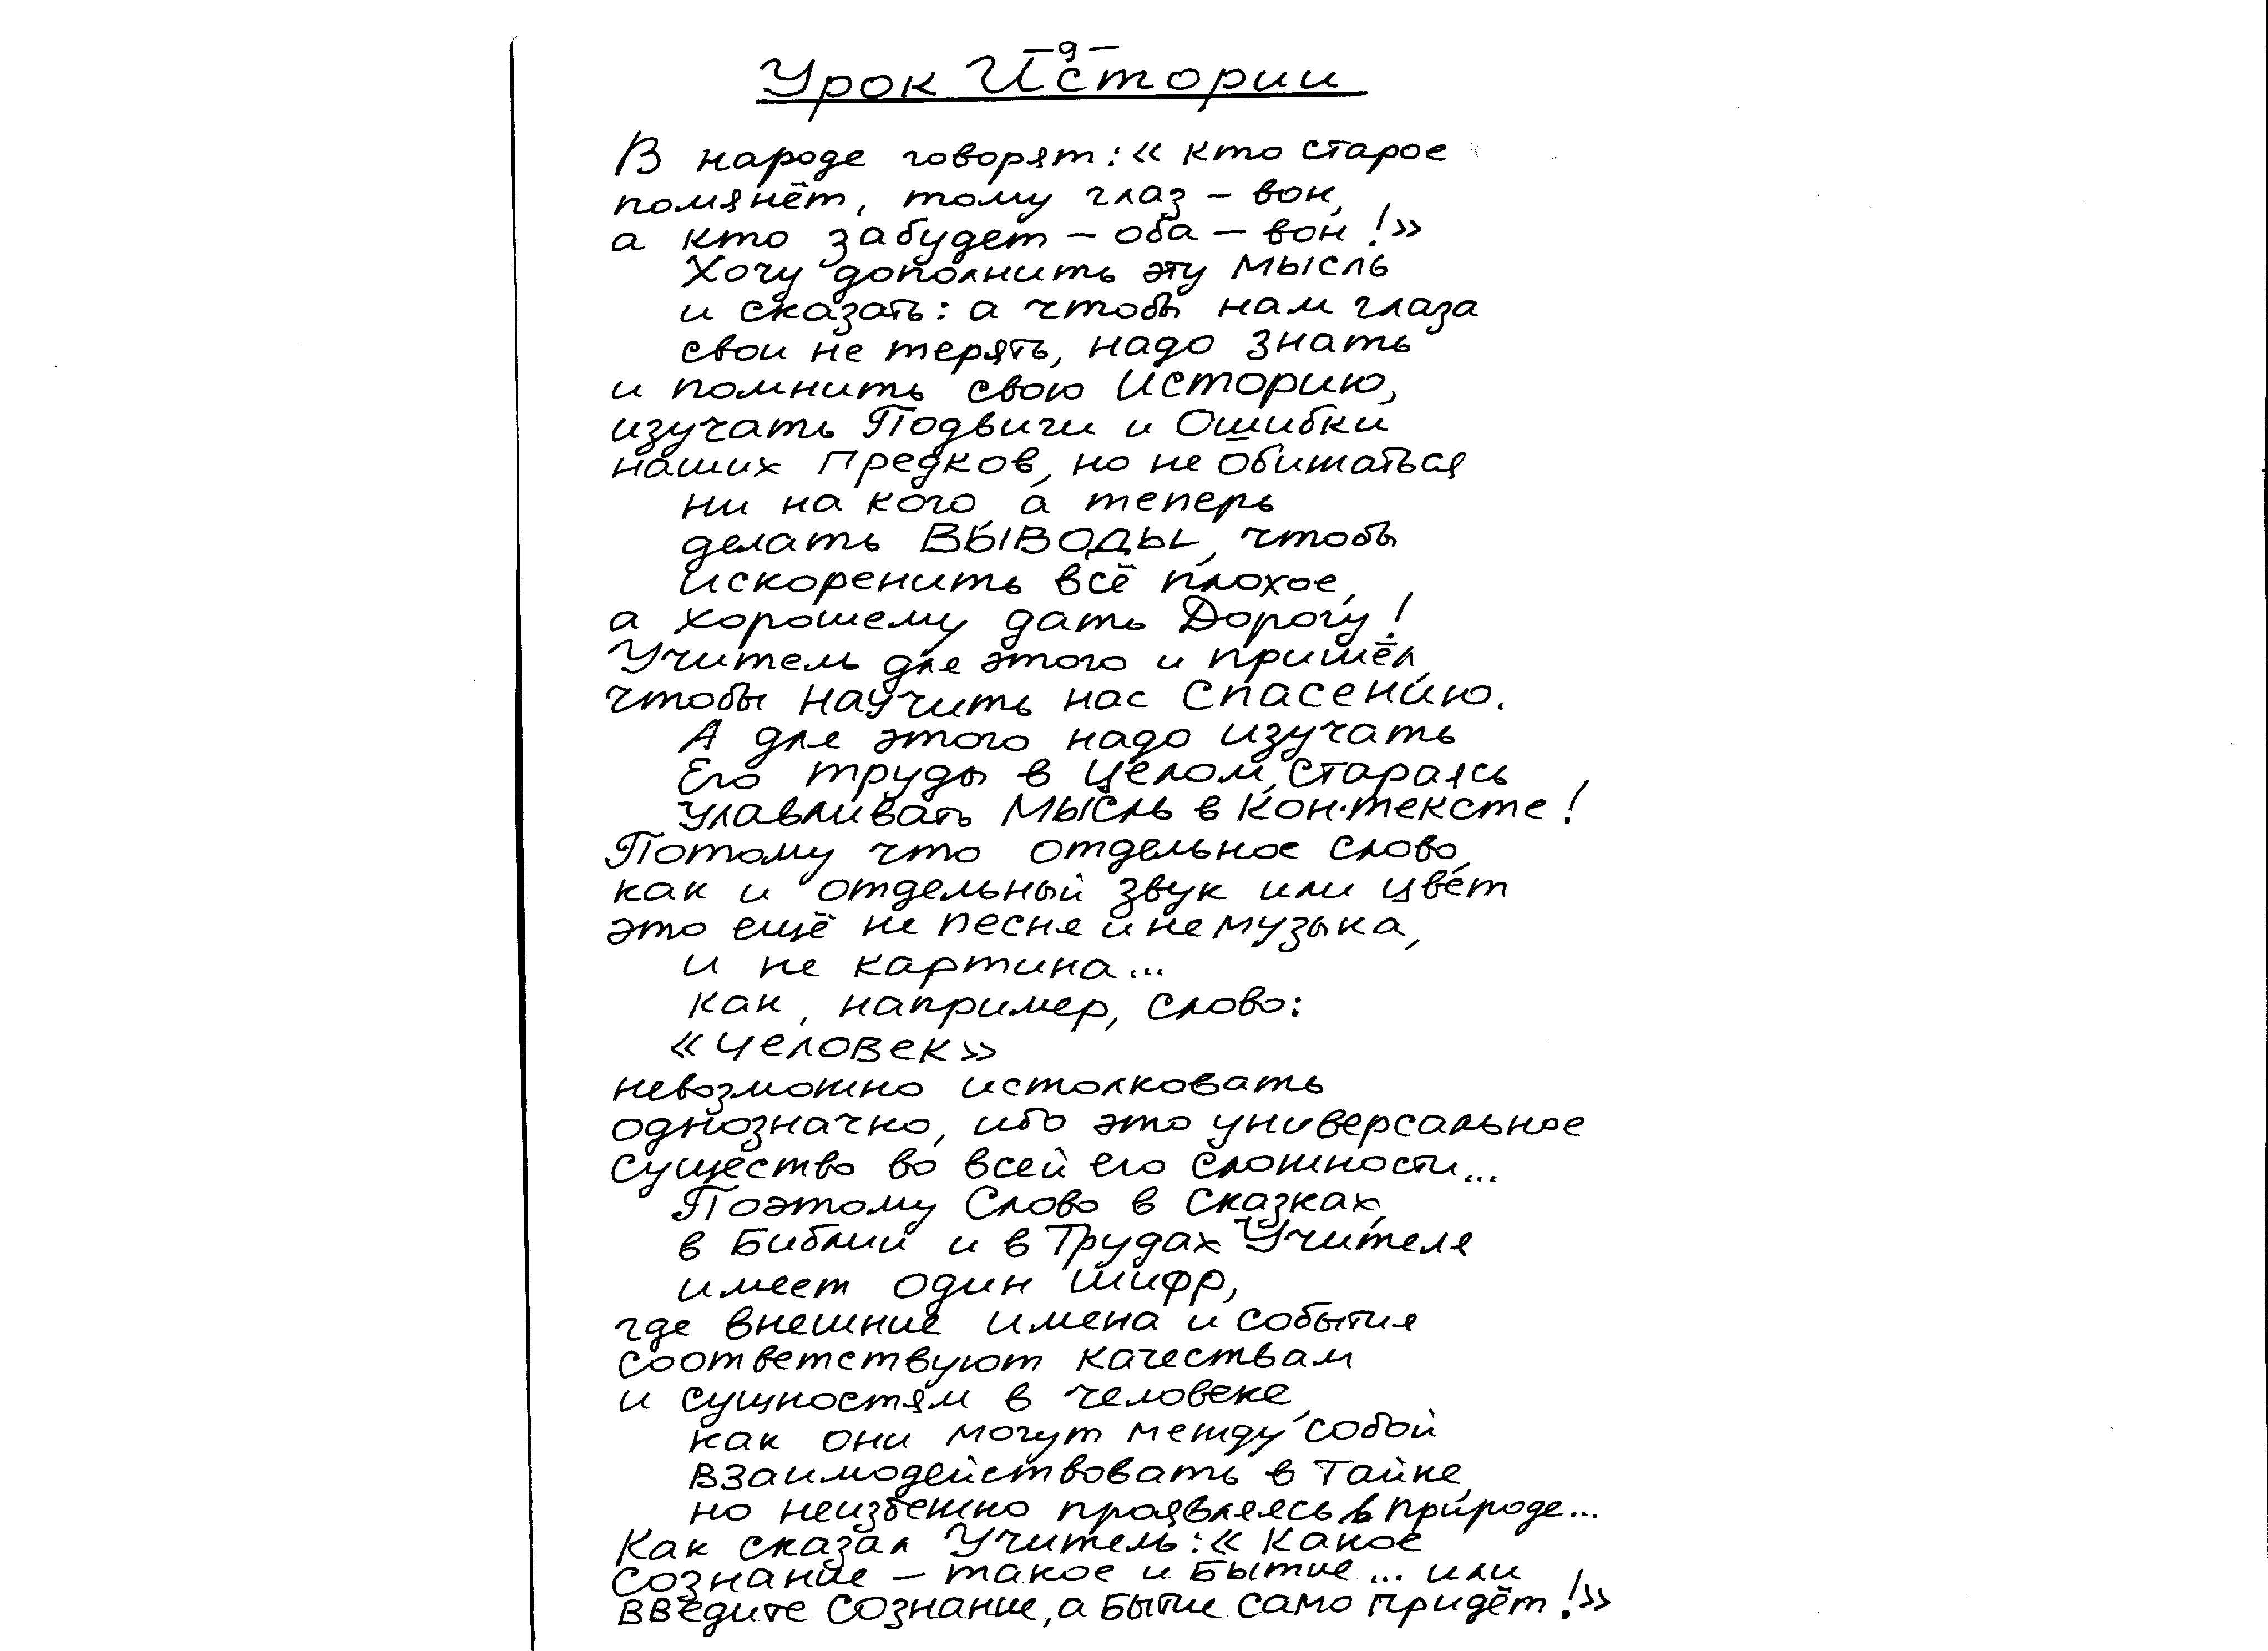 –9–
Урок Истории
В народе говорят: «кто старое
помянёт, тому глаз – вон,
а кто забудет – оба – вон!»
Хочу дополнить эту мысль
и сказать: а чтобы нам глаза
свои не терять, надо знать
и помнить свою Историю,
изучать Подвиги и Ошибки
наших Предков, но не обижаться
ни на кого, а теперь
делать ВЫВОДЫ, чтобы
искоренить всё плохое,
а хорошему дать Дорогу!
Учитель для этого и пришёл,
чтобы научить нас Спасению.
А для этого надо изучать
Его труды в Целом, стараясь
улавливать Мысль в Кон·тексте!
Потому что отдельное слово,
как и отдельный звук или цвет
это ещё не песня и не музыка,
и не картина...
как, например, слово:
«Человек»
невозможно истолковать
однозначно, ибо это универсальное
существо во всей его сложности...
Поэтому Слово в Сказках,
в Библии и в Трудах Учителя
имеет один шифр,
где внешние имена и события
соответствуют качествам
и сущностям в человеке,
как они могут между собой
взаимодействовать в Тайне,
но неизбежно проявляясь в природе...
Как сказал Учитель: «Какое
Сознание – такое и Бытие... или
введите Сознание, а Бытие само придёт!»